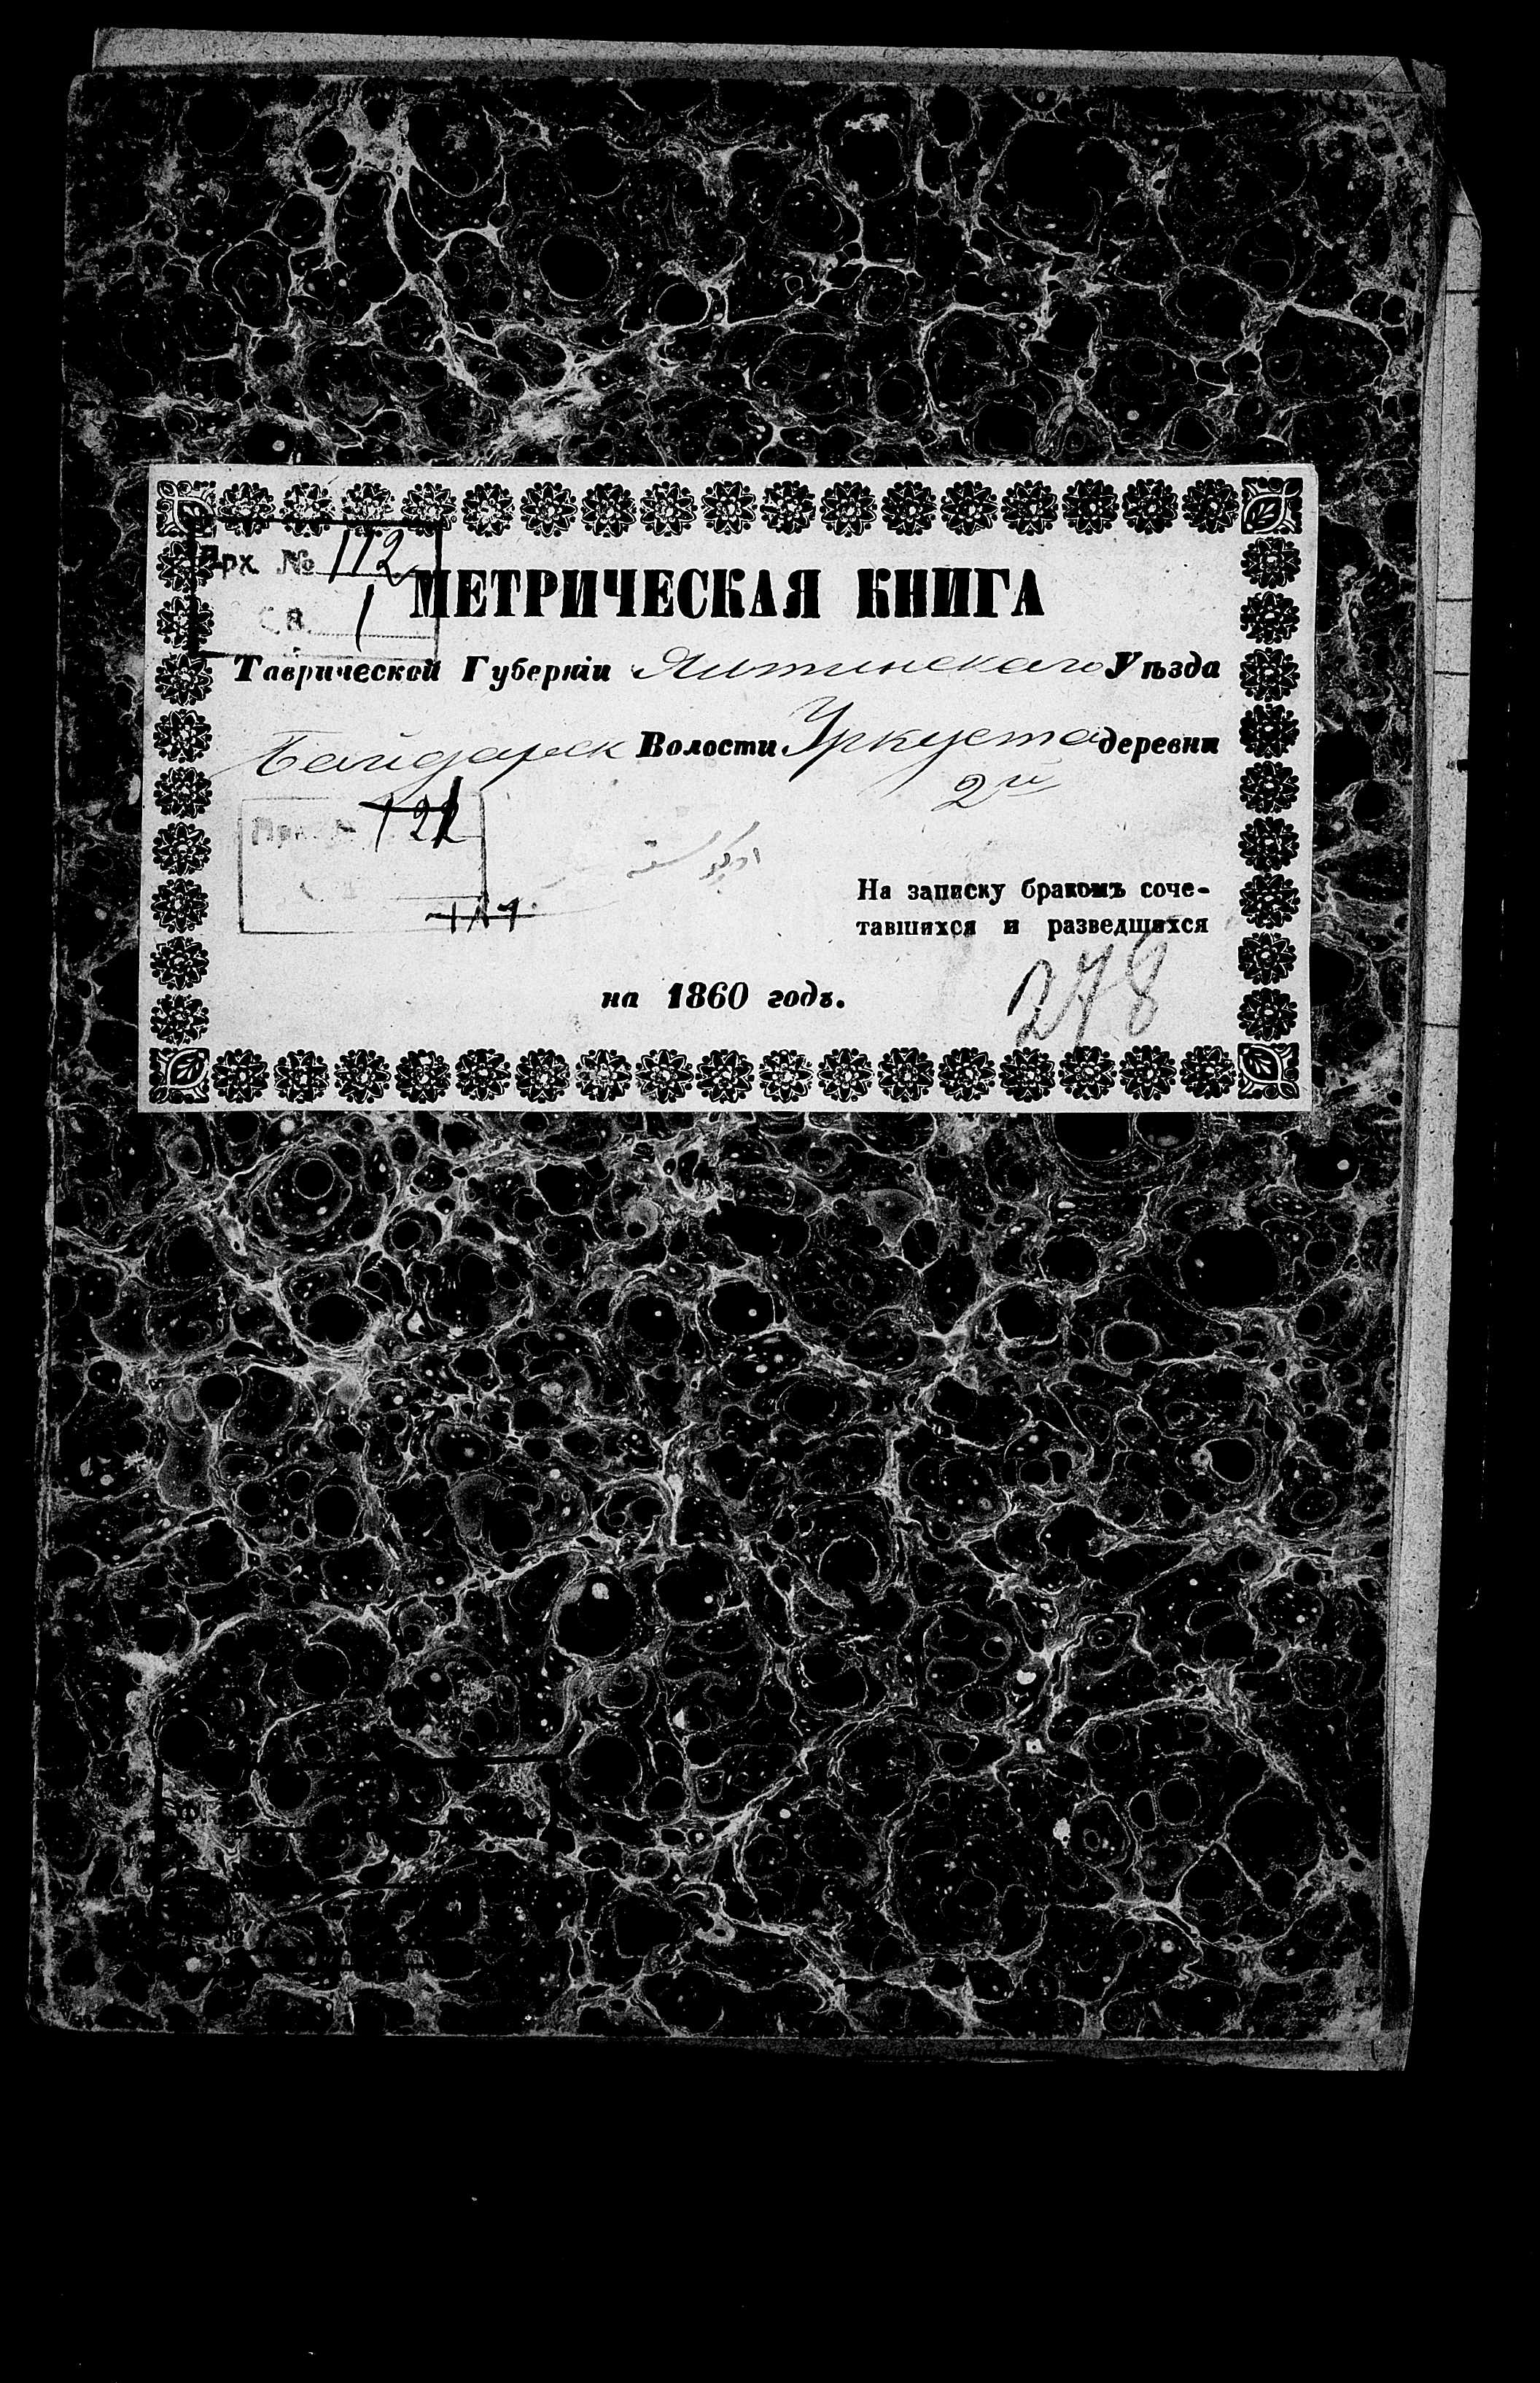 Арх. № 112
Св. 1
МЕТРИЧЕСКАЯ КНИГА
Таврической Губерніи Ялтинскаго Уѣзда
Байдарск Волости Уркуста деревни
2й
121
На записку бракомъ соче-
тавшихся и разведшихся
278
на 1860 годъ.